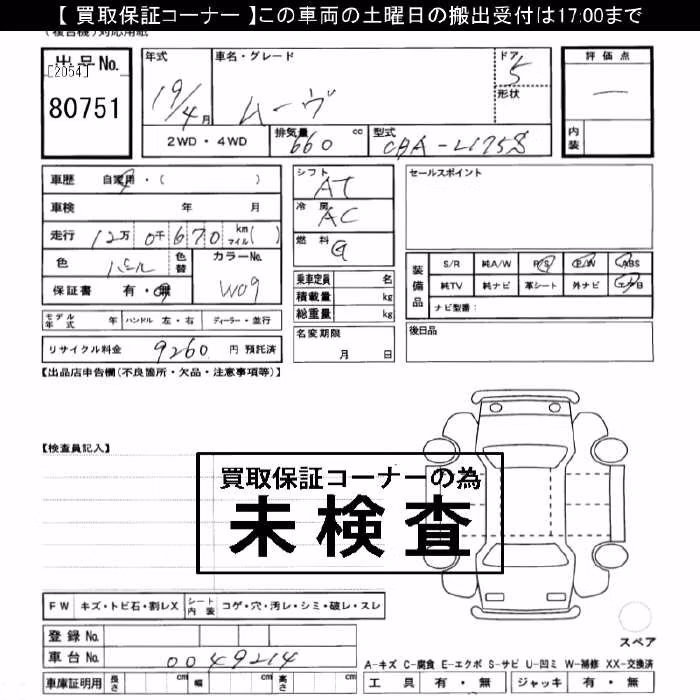 【 買取保証コーナー 】この車両の土曜日の搬出受付は17:00まで
(複合機)対応用紙
出品No.
[2054]
80751
年式
19/4月
車名・グレード
ムーヴ
ドア
5
形状
評価点
内装
2WD・4WD
排気量 660 cc
型式 CBA-L175S
車歴 自家用・( )
車検 年 月
走行 12万 0千 6 7 0 km マイル( )
色 パール 色替
カラーNo. W09
保証書 有・無
モデル年式 年 ハンドル 左・右 ディーラー・並行
リサイクル料金 9260 円 預託済
シフト AT
冷房 AC
燃料 G
乗車定員 名
積載量 kg
総重量 kg
名変期限 月 日
セールスポイント
装備品
S/R 純A/W P/S P/W ABS
純TV 純ナビ 革シート 外ナビ エアB
ナビ型番:
後日品
【出品店申告欄(不良箇所・欠品・注意事項等)】
【検査員記入】
買取保証コーナーの為
未検査
FW キズ・トビ石・割レX シート内装 コゲ・穴・汚レ・シミ・破レ・スレ
登録No.
車台No. 0049214
車庫証明用 長さ cm 幅 cm 高さ cm
スペア
A-キズ C-腐食 E-エクボ S-サビ U-凹ミ W-補修 XX-交換済
工具 有・無 ジャッキ 有・無